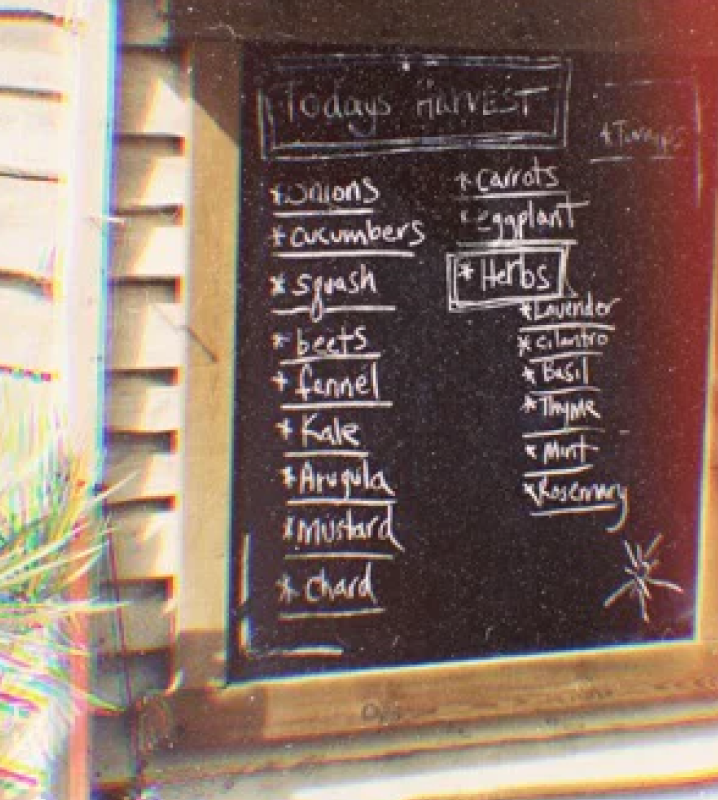 Todays HARVEST
*Turnips
*onions
*cucumbers
*squash
*beets
*fennel
*Kale
*Arugula
*Mustard
*Chard
*carrots
*eggplant
*Herbs
*Lavender
*cilantro
*Basil
*Thyme
*Mint
*Rosemary